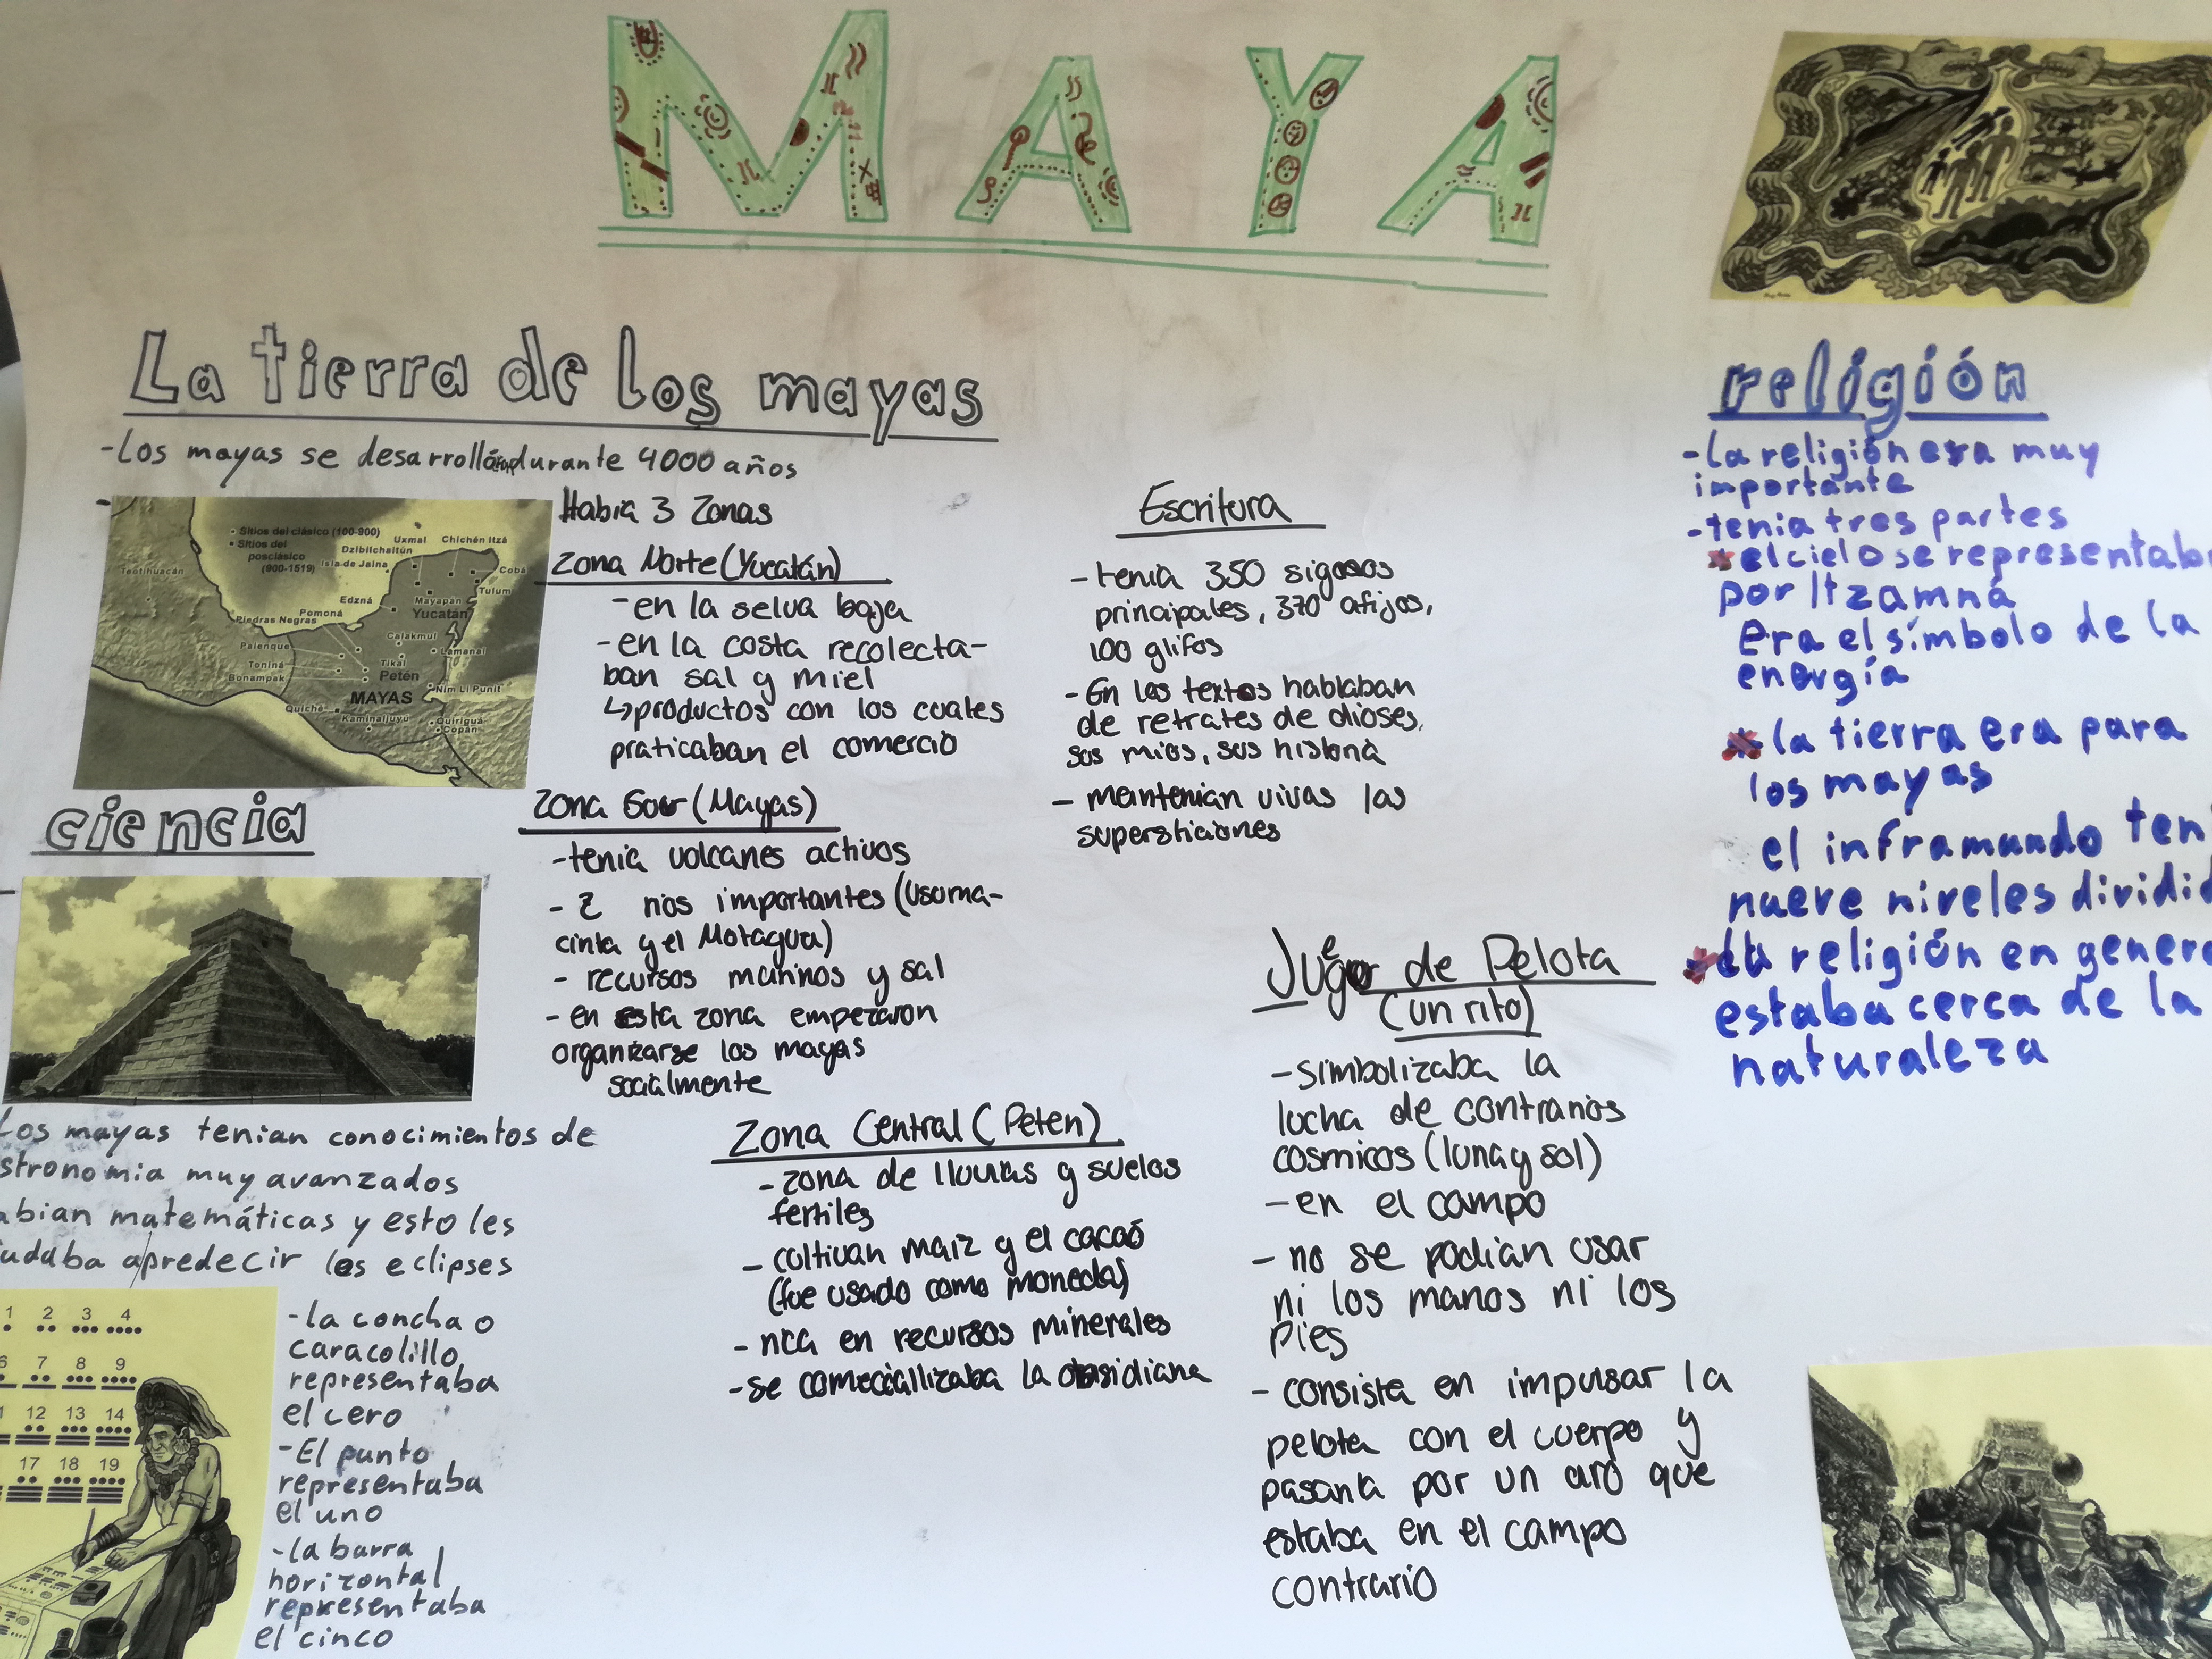 MAYA
La tierra de los mayas
-Los mayas se desarrollaron durante 4000 años
-
• Sitios del clásico (100-900)
▪ Sitios del
posclásico
(900-1519)
Uxmal
Chichén Itzá
Dzibilchaltún
Isla de Jaina
Cobá
Teotihuacán
Tulum
Edzná
Mayapan
Pomoná
Yucatán
Piedras Negras
Calakmul
Palenque
Lamanai
Toniná
Tikal
Petén
Bonampak
Nim Li Punit
MAYAS
Quiché
Kaminaljuyú
Quiriguá
Copán
Habia 3 Zonas
Zona Norte (Yucatán)
-en la selva baja
-en la costa recolecta-
ban sal y miel
↳productos con los cuales
praticaban el comercio
Zona Sur (Mayas)
-tenia volcanes activos
- 2 rios importantes (Usuma-
cinta y el Motagua)
- recursos marinos y sal
- en esta zona empezaron
organizarse los mayas
socialmente
Zona Central (Peten)
- zona de lluvias y suelos
fertiles
- cultivan maiz y el cacaó
(fue usado como moneda)
- rica en recursos minerales
-se comeciallizaba la obsidiana
ciencia
Los mayas tenian conocimientos de
stronomia muy avanzados
abian matemáticas y esto les
udaba apredecir los eclipses
1 2 3 4
6 7 8 9
1 12 13 14
17 18 19
-la concha o
caracolillo
representaba
el cero
-El punto
representaba
el uno
-la barra
horizontal
representaba
el cinco
Escritura
-tenia 350 signos
principales, 370 afijos,
100 glifos
- En los textos hablaban
de retrates de dioses,
sus historia
- mantenian vivas las
supersticiones
Juego de Pelota
(un rito)
-simbolizaba la
lucha de contrarios
cosmicos (luna y sol)
-en el campo
- no se podian usar
ni los manos ni los
pies
- consistia en impulsar la
pelota con el cuerpo y
pasarla por un aro que
estaba en el campo
contrario
religión
-la religión era muy
importante
-tenia tres partes
*el cielo se representab
por Itzamná
Era el símbolo de la
energía
*la tierra era para
los mayas
el inframundo ten
nueve niveles dividid
*La religión en gener
estaba cerca de la
naturaleza